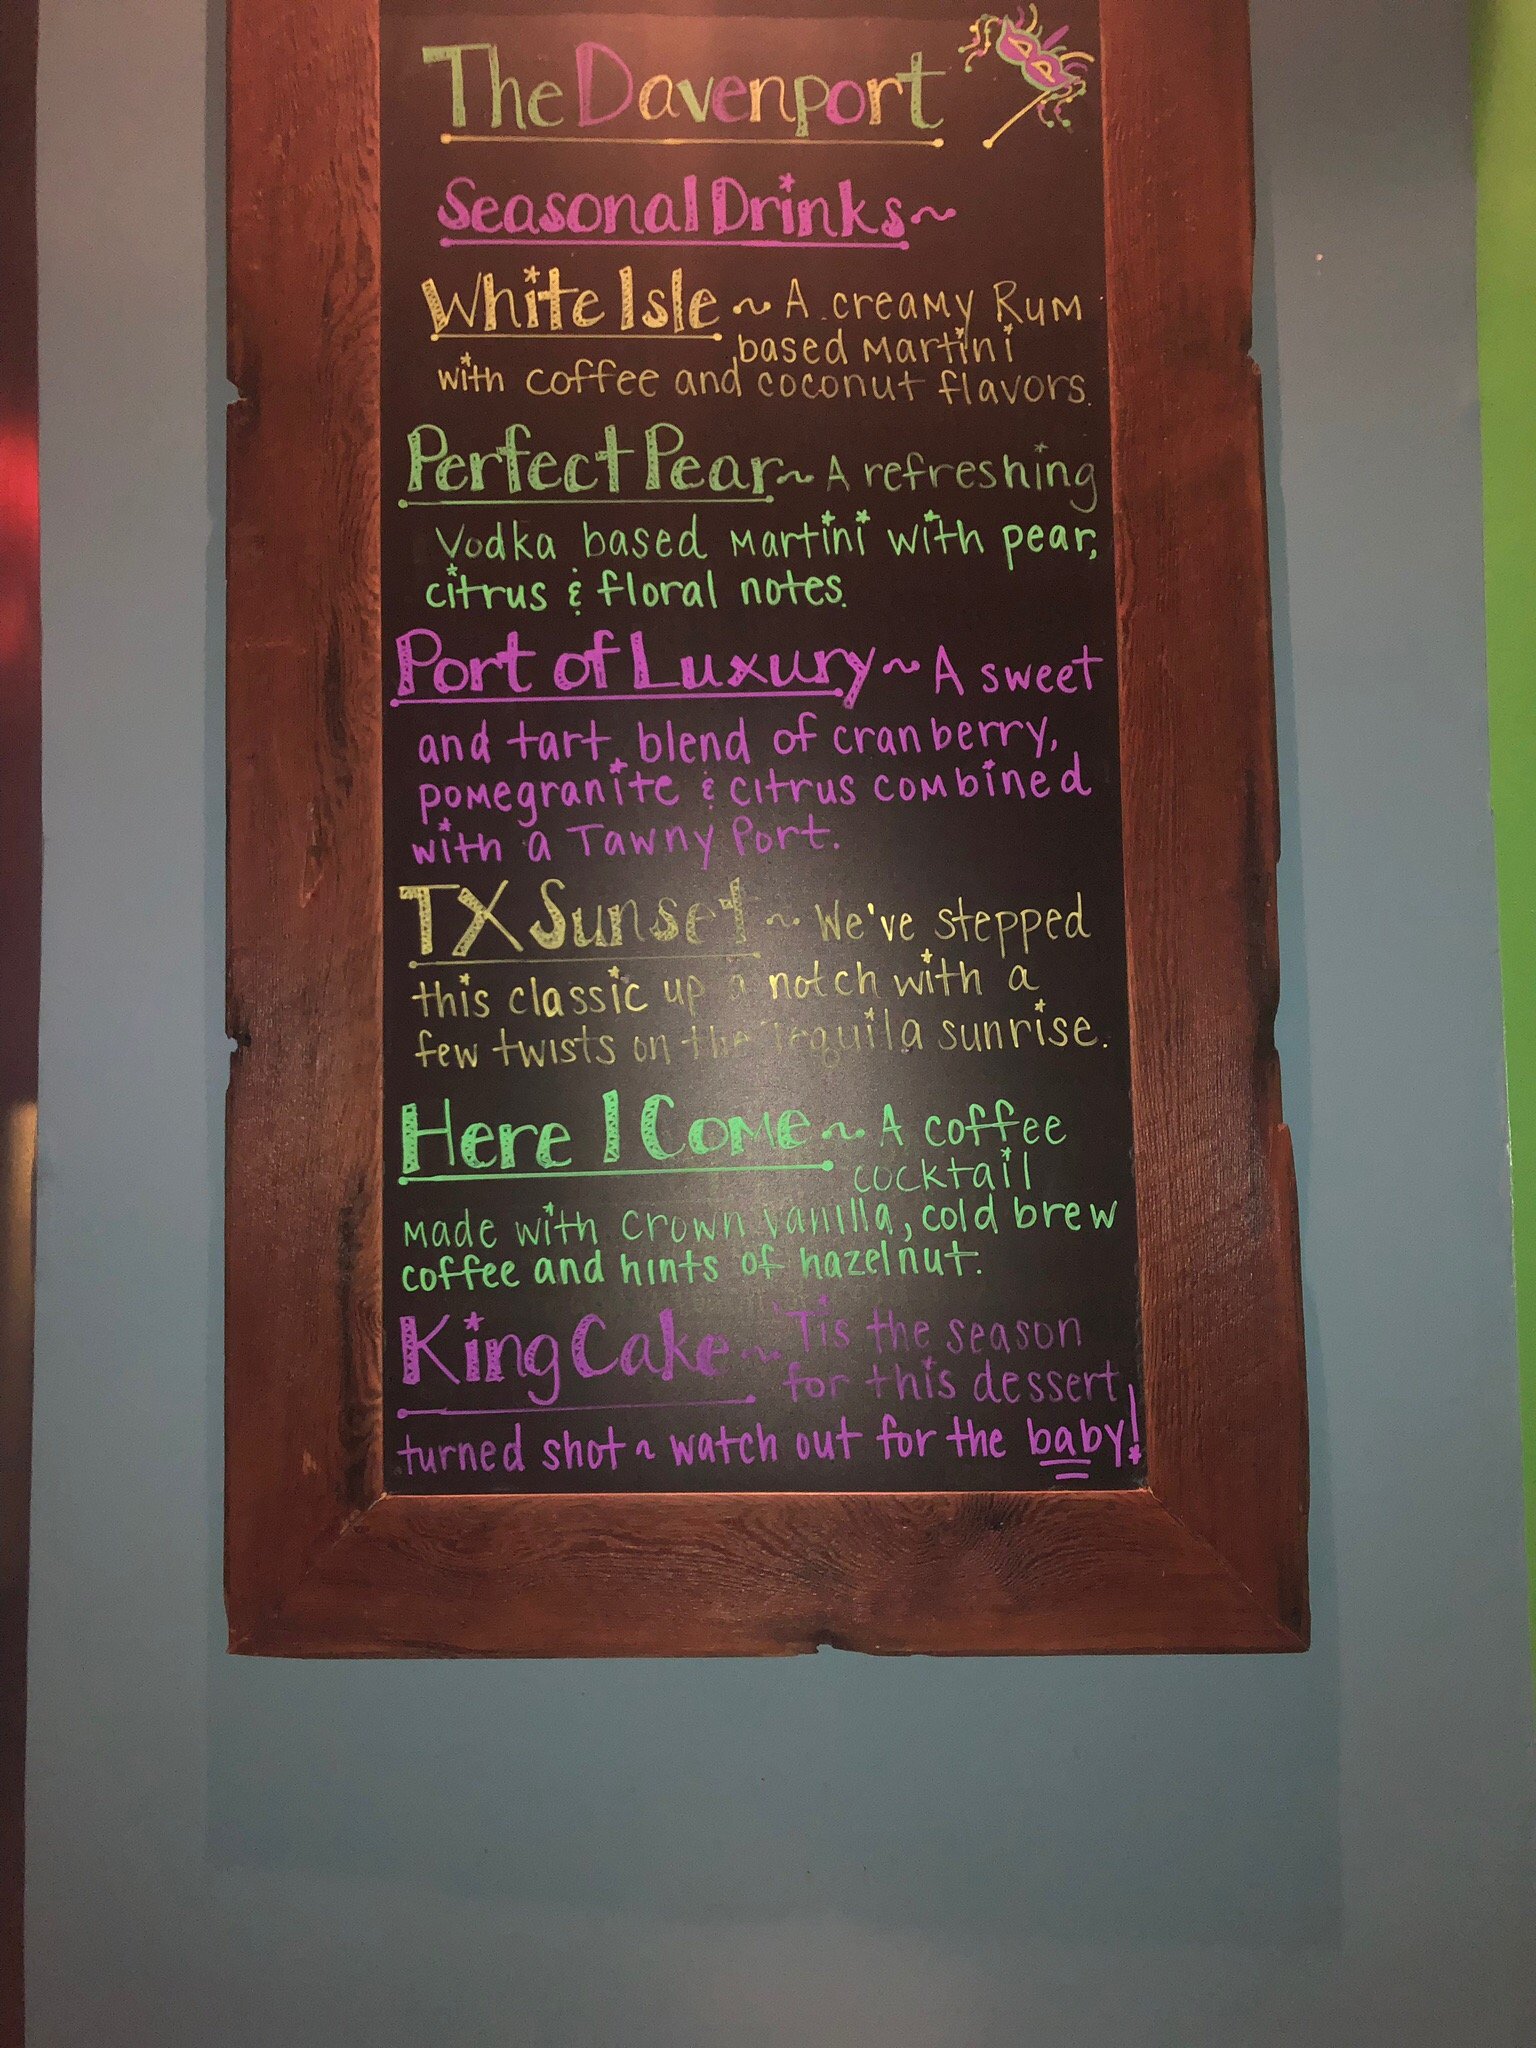 The Davenport
Seasonal Drinks~
White Isle ~ A creamy Rum
based Martini
with coffee and coconut flavors.
Perfect Pear ~ A refreshing
Vodka based Martini with pear,
citrus & floral notes.
Port of Luxury ~ A sweet
and tart blend of cranberry,
pomegranite & citrus combined
with a Tawny Port.
TX Sunset ~ We've stepped
this classic up a notch with a
few twists on the Tequila sunrise.
Here I Come ~ A coffee
cocktail
made with Crown Vanilla, cold brew
coffee and hints of hazelnut.
King Cake ~ 'Tis the season
for this dessert
turned shot ~ watch out for the baby!